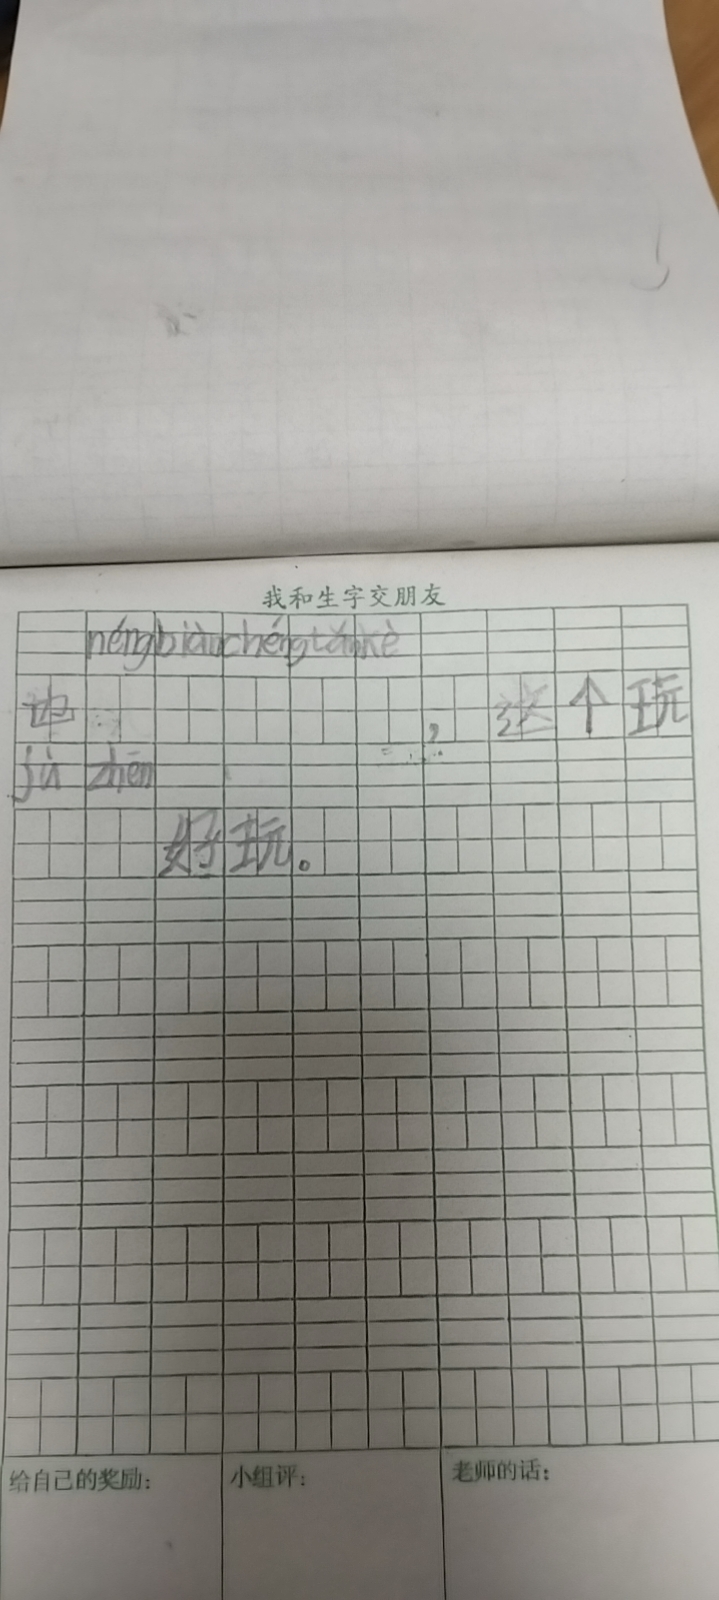 我和生字交朋友
néng biàn chéng tǎn kè
也 , 这个玩
jù zhēn
好玩。
给自己的奖励: 小组评: 老师的话: